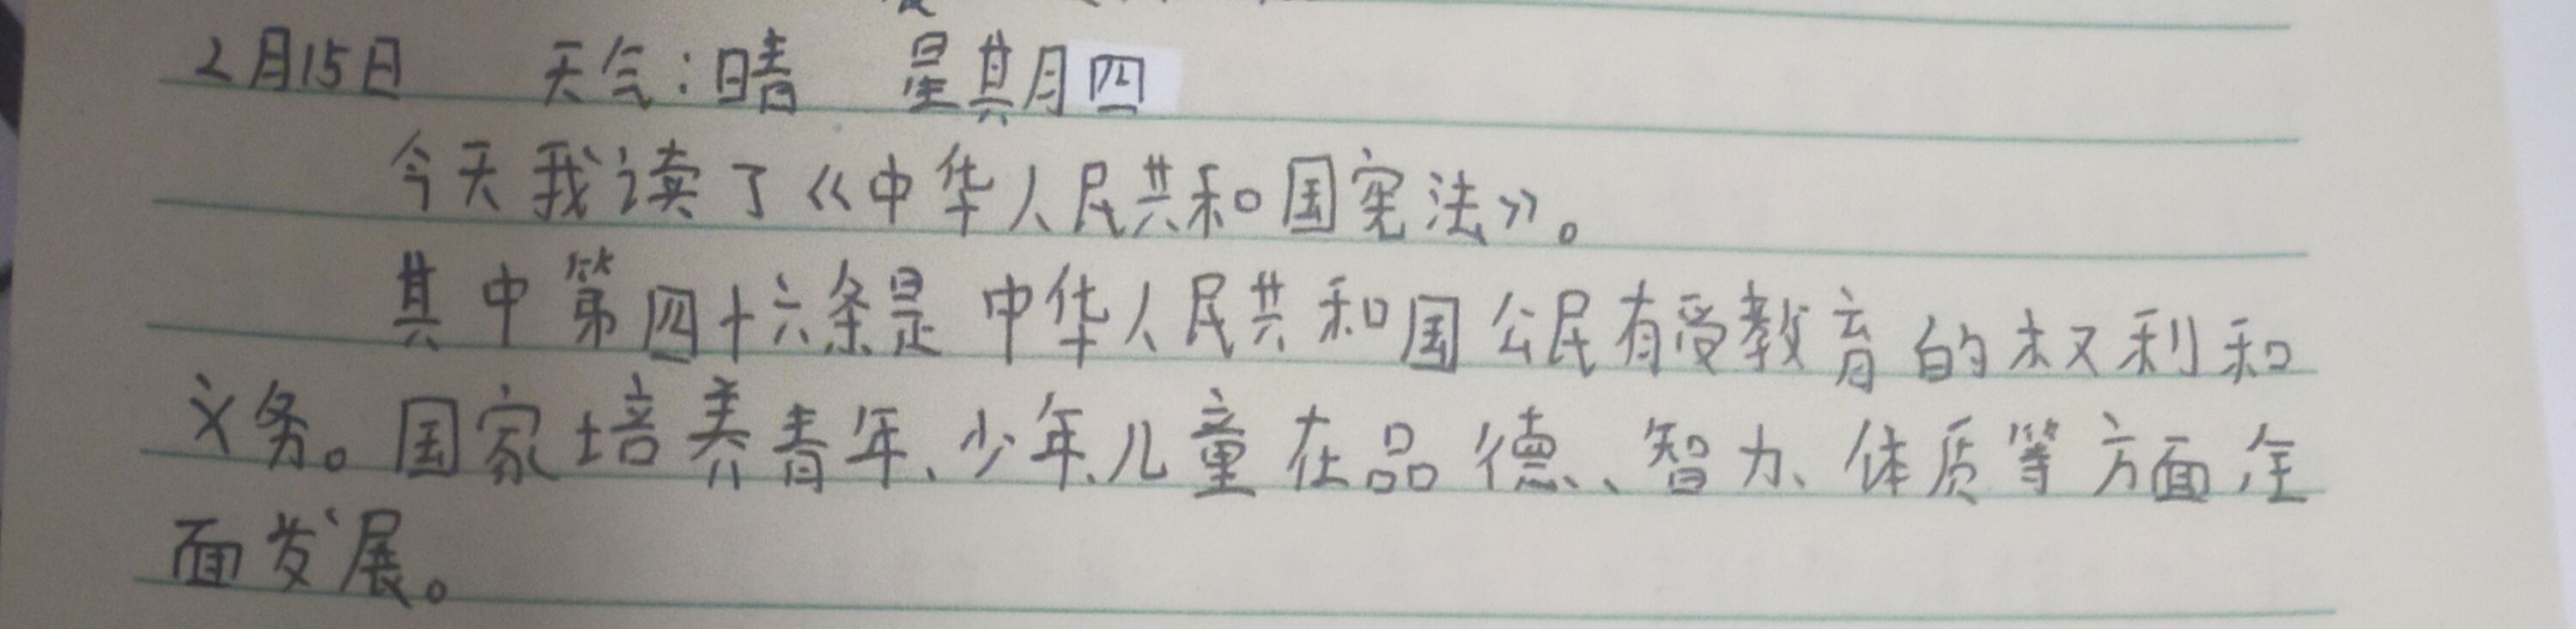 2月15日 天气:晴 星其月四
今天我读了《中华人民共和国宪法》。
其中第四十六条是中华人民共和国公民有受教育的权利和
义务。国家培养青年、少年、儿童在品德、智力、体质等方面全
面发展。